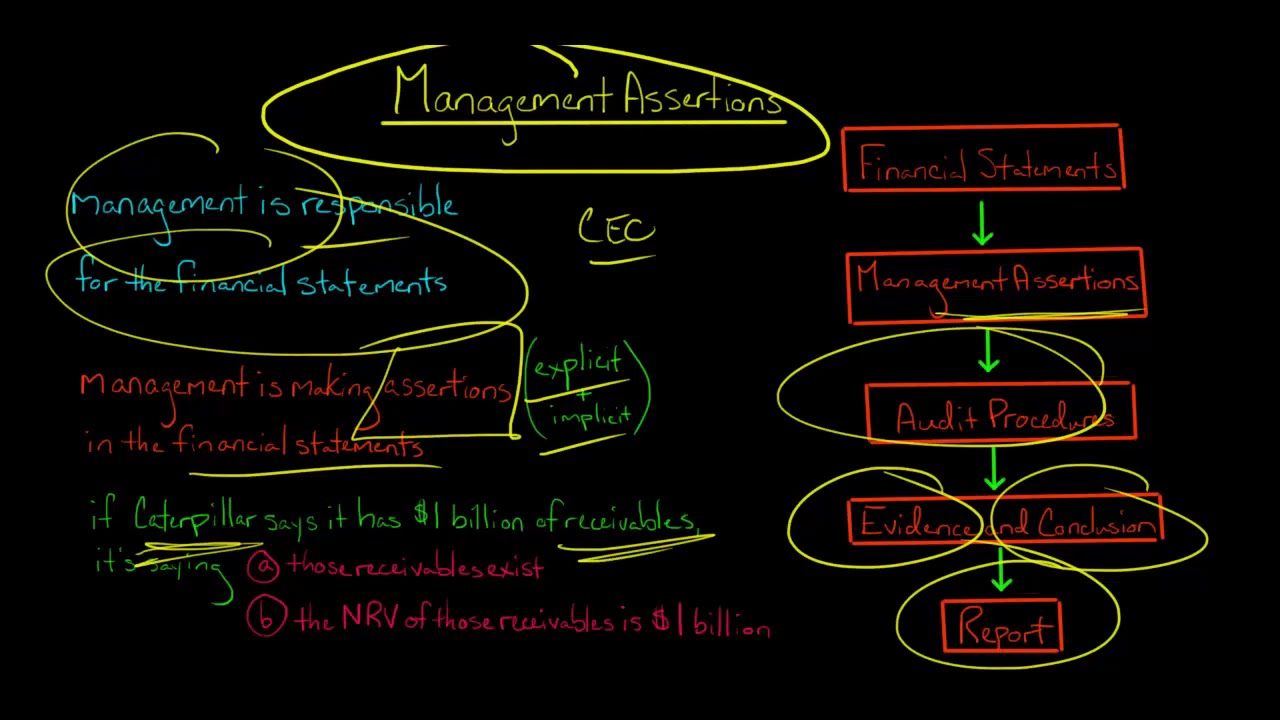 Management Assertions
management is responsible
for the financial statements
CEO
management is making assertions
in the financial statements
(explicit
+
implicit)
if Caterpillar says it has $1 billion of receivables,
it's saying
a those receivables exist
b the NRV of those receivables is $1 billion
Financial Statements
Management Assertions
Audit Procedures
Evidence and Conclusion
Report